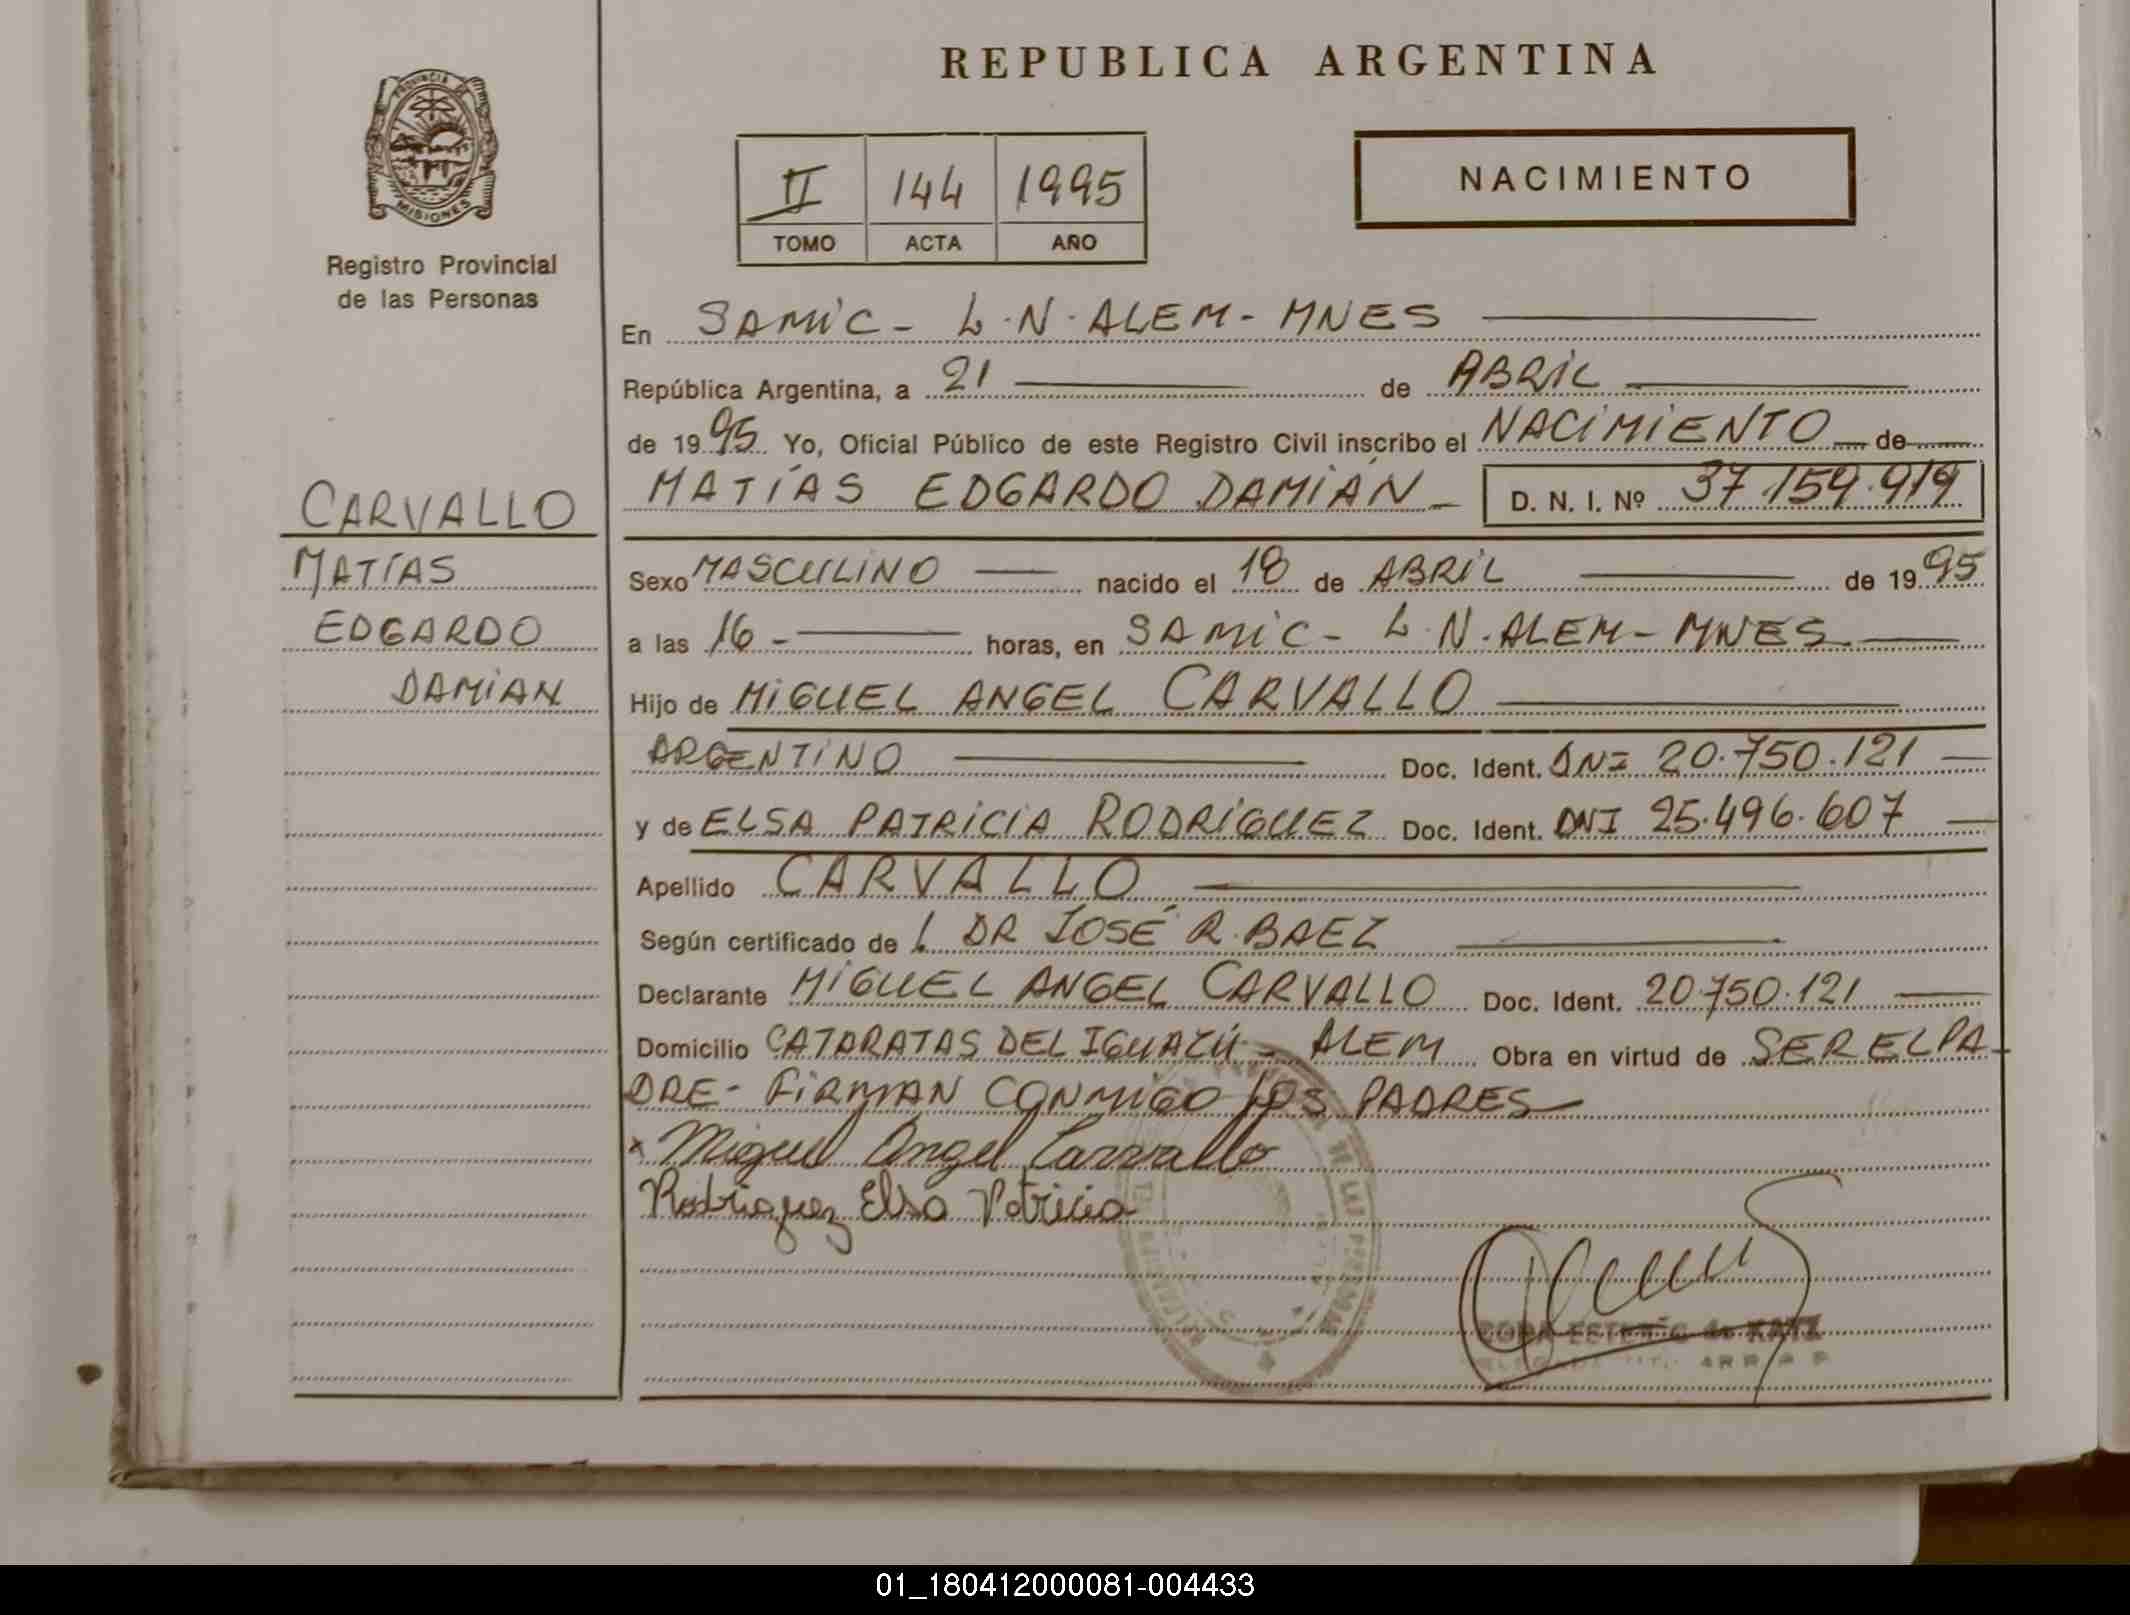 REPUBLICA ARGENTINA
PROVINCIA DE
MISIONES
Registro Provincial
de las Personas
II 144 1995
TOMO ACTA AÑO
NACIMIENTO
En SAMIC - L.N. ALEM - MNES
República Argentina, a 21 de ABRIL
de 1995 Yo, Oficial Público de este Registro Civil inscribo el NACIMIENTO de
MATÍAS EDGARDO DAMIÁN - D. N. I. Nº 37.159.919
CARVALLO
MATÍAS
EDGARDO
DAMIAN
Sexo MASCULINO nacido el 18 de ABRIL de 1995
a las 16 - horas, en SAMIC - L.N. ALEM - MNES
Hijo de MIGUEL ANGEL CARVALLO
ARGENTINO Doc. Ident. DNI 20.750.121
y de ELSA PATRICIA RODRÍGUEZ Doc. Ident. DNI 25.496.607
Apellido CARVALLO
Según certificado de l DR JOSÉ R. BAEZ
Declarante MIGUEL ANGEL CARVALLO Doc. Ident. 20.750.121
Domicilio CATARATAS DEL IGUAZÚ - ALEM Obra en virtud de SER EL PA-
DRE - FIRMAN CONMIGO LOS PADRES
x Miguel Angel Carvallo
Rodriguez Elsa Patricia
DE LAS PERSONAS
de KATZ
01_180412000081-004433